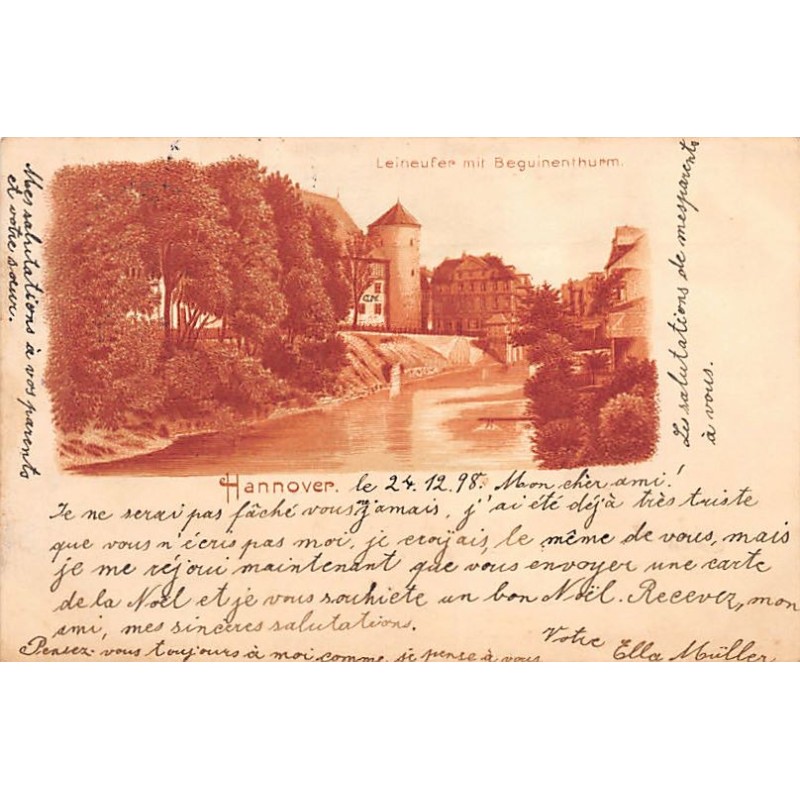 Leineufer mit Beguinenthurm.
Mes salutations à vos parents
et votre sœur.
Les salutations de mes parents
à vous.
Hannover. le 24.12.98. Mon cher ami!
Je ne serai pas fâché vous jamais, j'ai été déjà très triste
que vous n'écris pas moi, je croyais, le même de vous, mais
je me réjoui maintenant que vous envoyer une carte
de la Noël et je vous souhiete un bon Noël. Recevez, mon
ami, mes sincères salutations.
Votre
Pensez-vous toujours à moi comme je pense à vous.
Ella Müller